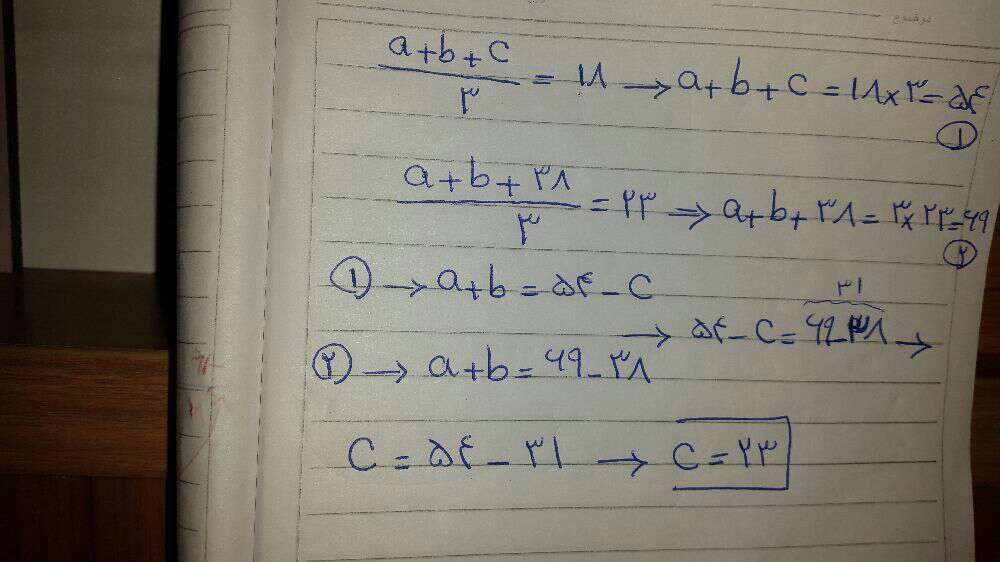 موضوع
(a+b+c)/۳ = ۱۸ → a+b+c = ۱۸×۳=۵۴ ①
(a+b+۳۸)/۳ = ۲۳ ⇒ a+b+۳۸ = ۳×۲۳=۶۹ ②
① → a+b = ۵۴-c
۳۱
→ ۵۴-c = ۶۹-۳۸ →
② → a+b = ۶۹-۳۸
c = ۵۴-۳۱ → c = ۲۳